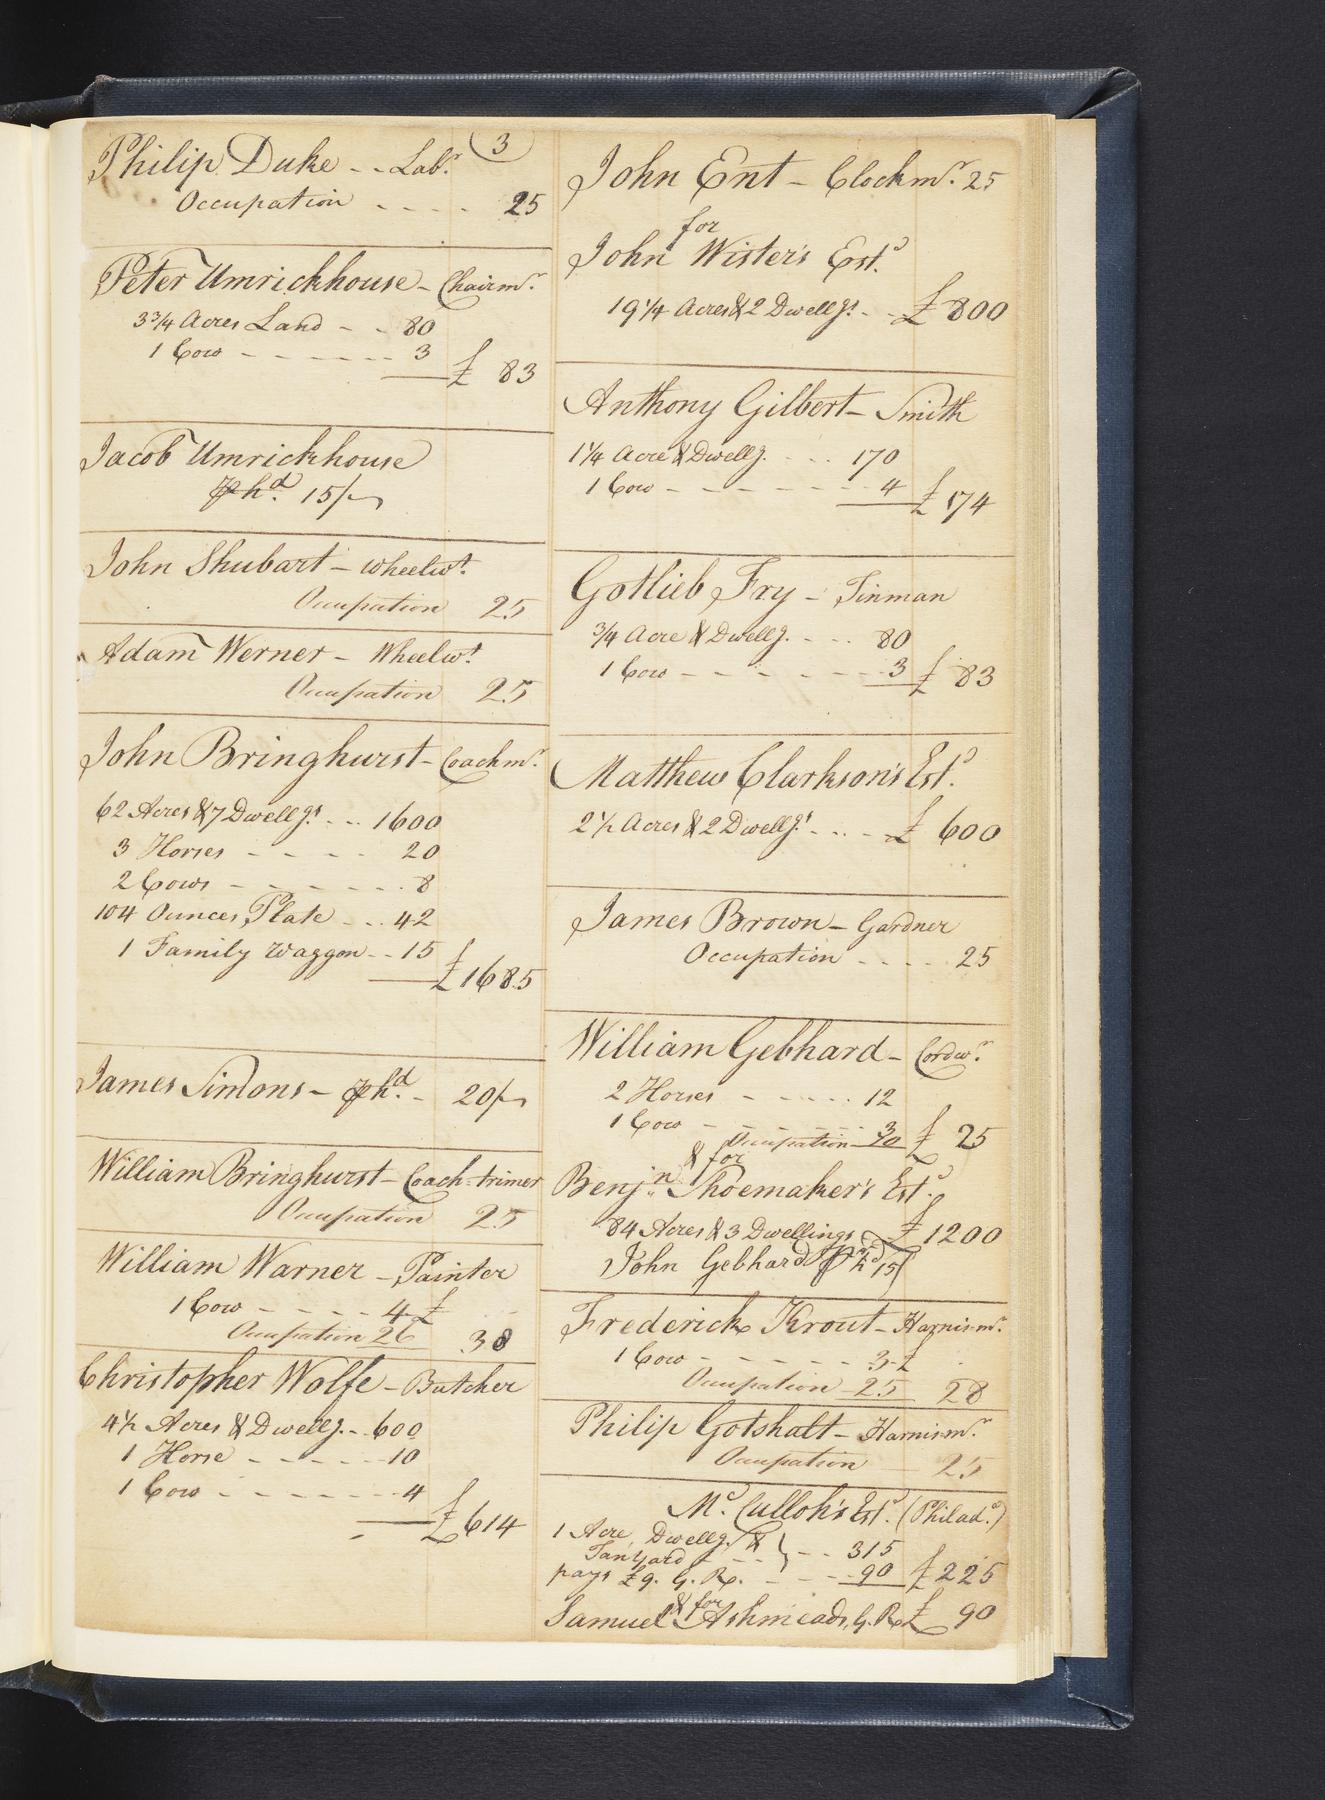 3
Philip Duke - - Labr.
Occupation - - - - 25
Peter Umrickhouse - Chairmr.
3¾ Acres Land - - 80
1 Cow - - - - - - 3
£ 83
Jacob Umrickhouse
P hd. 15/-
John Shubart - wheelwt.
Occupation 25
Adam Werner - Wheelwt.
Occupation 25
John Bringhurst - Coachmr.
62 Acres & 7 Dwellgs. - - 1600
3 Horses - - - - 20
2 Cows - - - - - - 8
104 Ounces Plate - - - 42
1 Family Waggon - - 15
£ 1685
James Simons - P hd. - 20/-
William Bringhurst - Coach-trimer
Occupation 25
William Warner - Painter
1 Cow - - - - 4 £
Occupation 26 30
Christopher Wolfe - Butcher
4½ Acres & Dwellg. - - 600
1 Horse - - - - - 10
1 Cow - - - - - - - 4
£ 614
John Ent - Clockmr. 25
for
John Wister's Estd.
19¼ Acres & 2 Dwellgs. - - £ 800
Anthony Gilbert - Smith
1¼ Acre & Dwellg. - - - 170
1 Cow - - - - - - - - 4
£ 174
Gotlieb Fry - Tinman
¾ Acre & Dwellg. - - - 80
1 Cow - - - - - - - - 3 £ 83
Matthew Clarkson's Estd.
2½ Acres & 2 Dwellgs. - - - - £ 600
James Brown - Gardner
Occupation - - - - - 25
William Gebhard - Cordwr.
2 Horses - - - - - - 12
1 Cow - - - - - - 3
Occupation - 10 £ 25
& for
Benjn. Shoemaker's Estd.
84 Acres & 3 Dwellings £ 1200
John Gebhard P hd 15/
Frederick Krout - Harnis-mr.
1 Cow - - - - - - 3 £
Occupation - 25 28
Philip Gotshalt - Harnismr.
Occupation 25
Mc. Culloh's Estd. (Philada.)
1 Acre, Dwellg. &
Tanyard - - - } - - 315
pays £9. G. R. - - - - 90 £ 225
& for
Samuel Ashmeads, G. R. £ 90